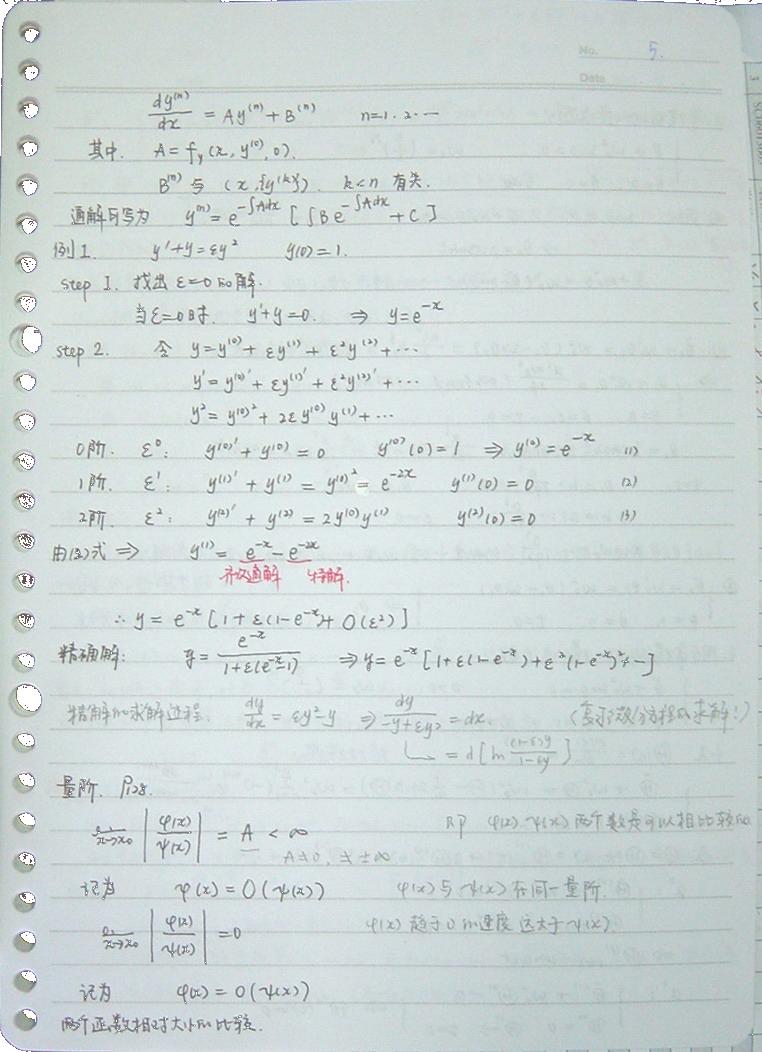 No. 5.
Date
dy⁽ⁿ⁾/dx = Ay⁽ⁿ⁾ + B⁽ⁿ⁾ n=1. 2. …
其中. A = f_y (x, y⁽⁰⁾, 0).
B⁽ⁿ⁾ 与 (x, {y⁽ᵏ⁾}). k<n 有关.
通解可写为 y⁽ⁿ⁾ = e^{-∫Adx} [∫Be^{-∫Adx} + C]
例1. y' + y = εy² y(0) = 1.
step 1. 找出 ε=0 的解.
当ε=0时. y'+y=0. ⇒ y=e^{-x}
step 2. 令 y = y⁽⁰⁾ + εy⁽¹⁾ + ε²y⁽²⁾ + …
y' = y⁽⁰⁾' + εy⁽¹⁾' + ε²y⁽²⁾' + …
y² = y⁽⁰⁾² + 2εy⁽⁰⁾y⁽¹⁾ + …
0阶. ε⁰: y⁽⁰⁾' + y⁽⁰⁾ = 0 y⁽⁰⁾(0) = 1 ⇒ y⁽⁰⁾ = e^{-x} (1)
1阶. ε¹: y⁽¹⁾' + y⁽¹⁾ = y⁽⁰⁾² = e^{-2x} y⁽¹⁾(0) = 0 (2)
2阶. ε²: y⁽²⁾' + y⁽²⁾ = 2y⁽⁰⁾y⁽¹⁾ y⁽²⁾(0) = 0 (3)
由(2)式 ⇒ y⁽¹⁾ = e^{-x} - e^{-2x}
齐次通解 特解.
∴ y = e^{-x} [1 + ε(1-e^{-x}) + O(ε²)]
精确解: y = e^{-x}/(1+ε(e^{-x}-1)) ⇒ y = e^{-x} [1+ε(1-e^{-x})+ε²(1-e^{-x})²+…]
精解的求解过程. dy/dx = εy²-y ⇒ dy/(-y+εy²) = dx. (复习微分方程的求解!)
= d[ln (1-ε)y/(1-εy)]
量阶. P128.
x→x₀ |φ(x)/ψ(x)| = A < ∞ 即 φ(x) ψ(x) 两个数是可以相比较的.
A≠0, ≠ ±∞
记为 φ(x) = O(ψ(x)) φ(x) 与 ψ(x) 在同一量阶.
x→x₀ |φ(x)/ψ(x)| = 0 φ(x) 趋于0的速度远大于ψ(x).
记为 φ(x) = o(ψ(x))
两个函数相对大小的比较.